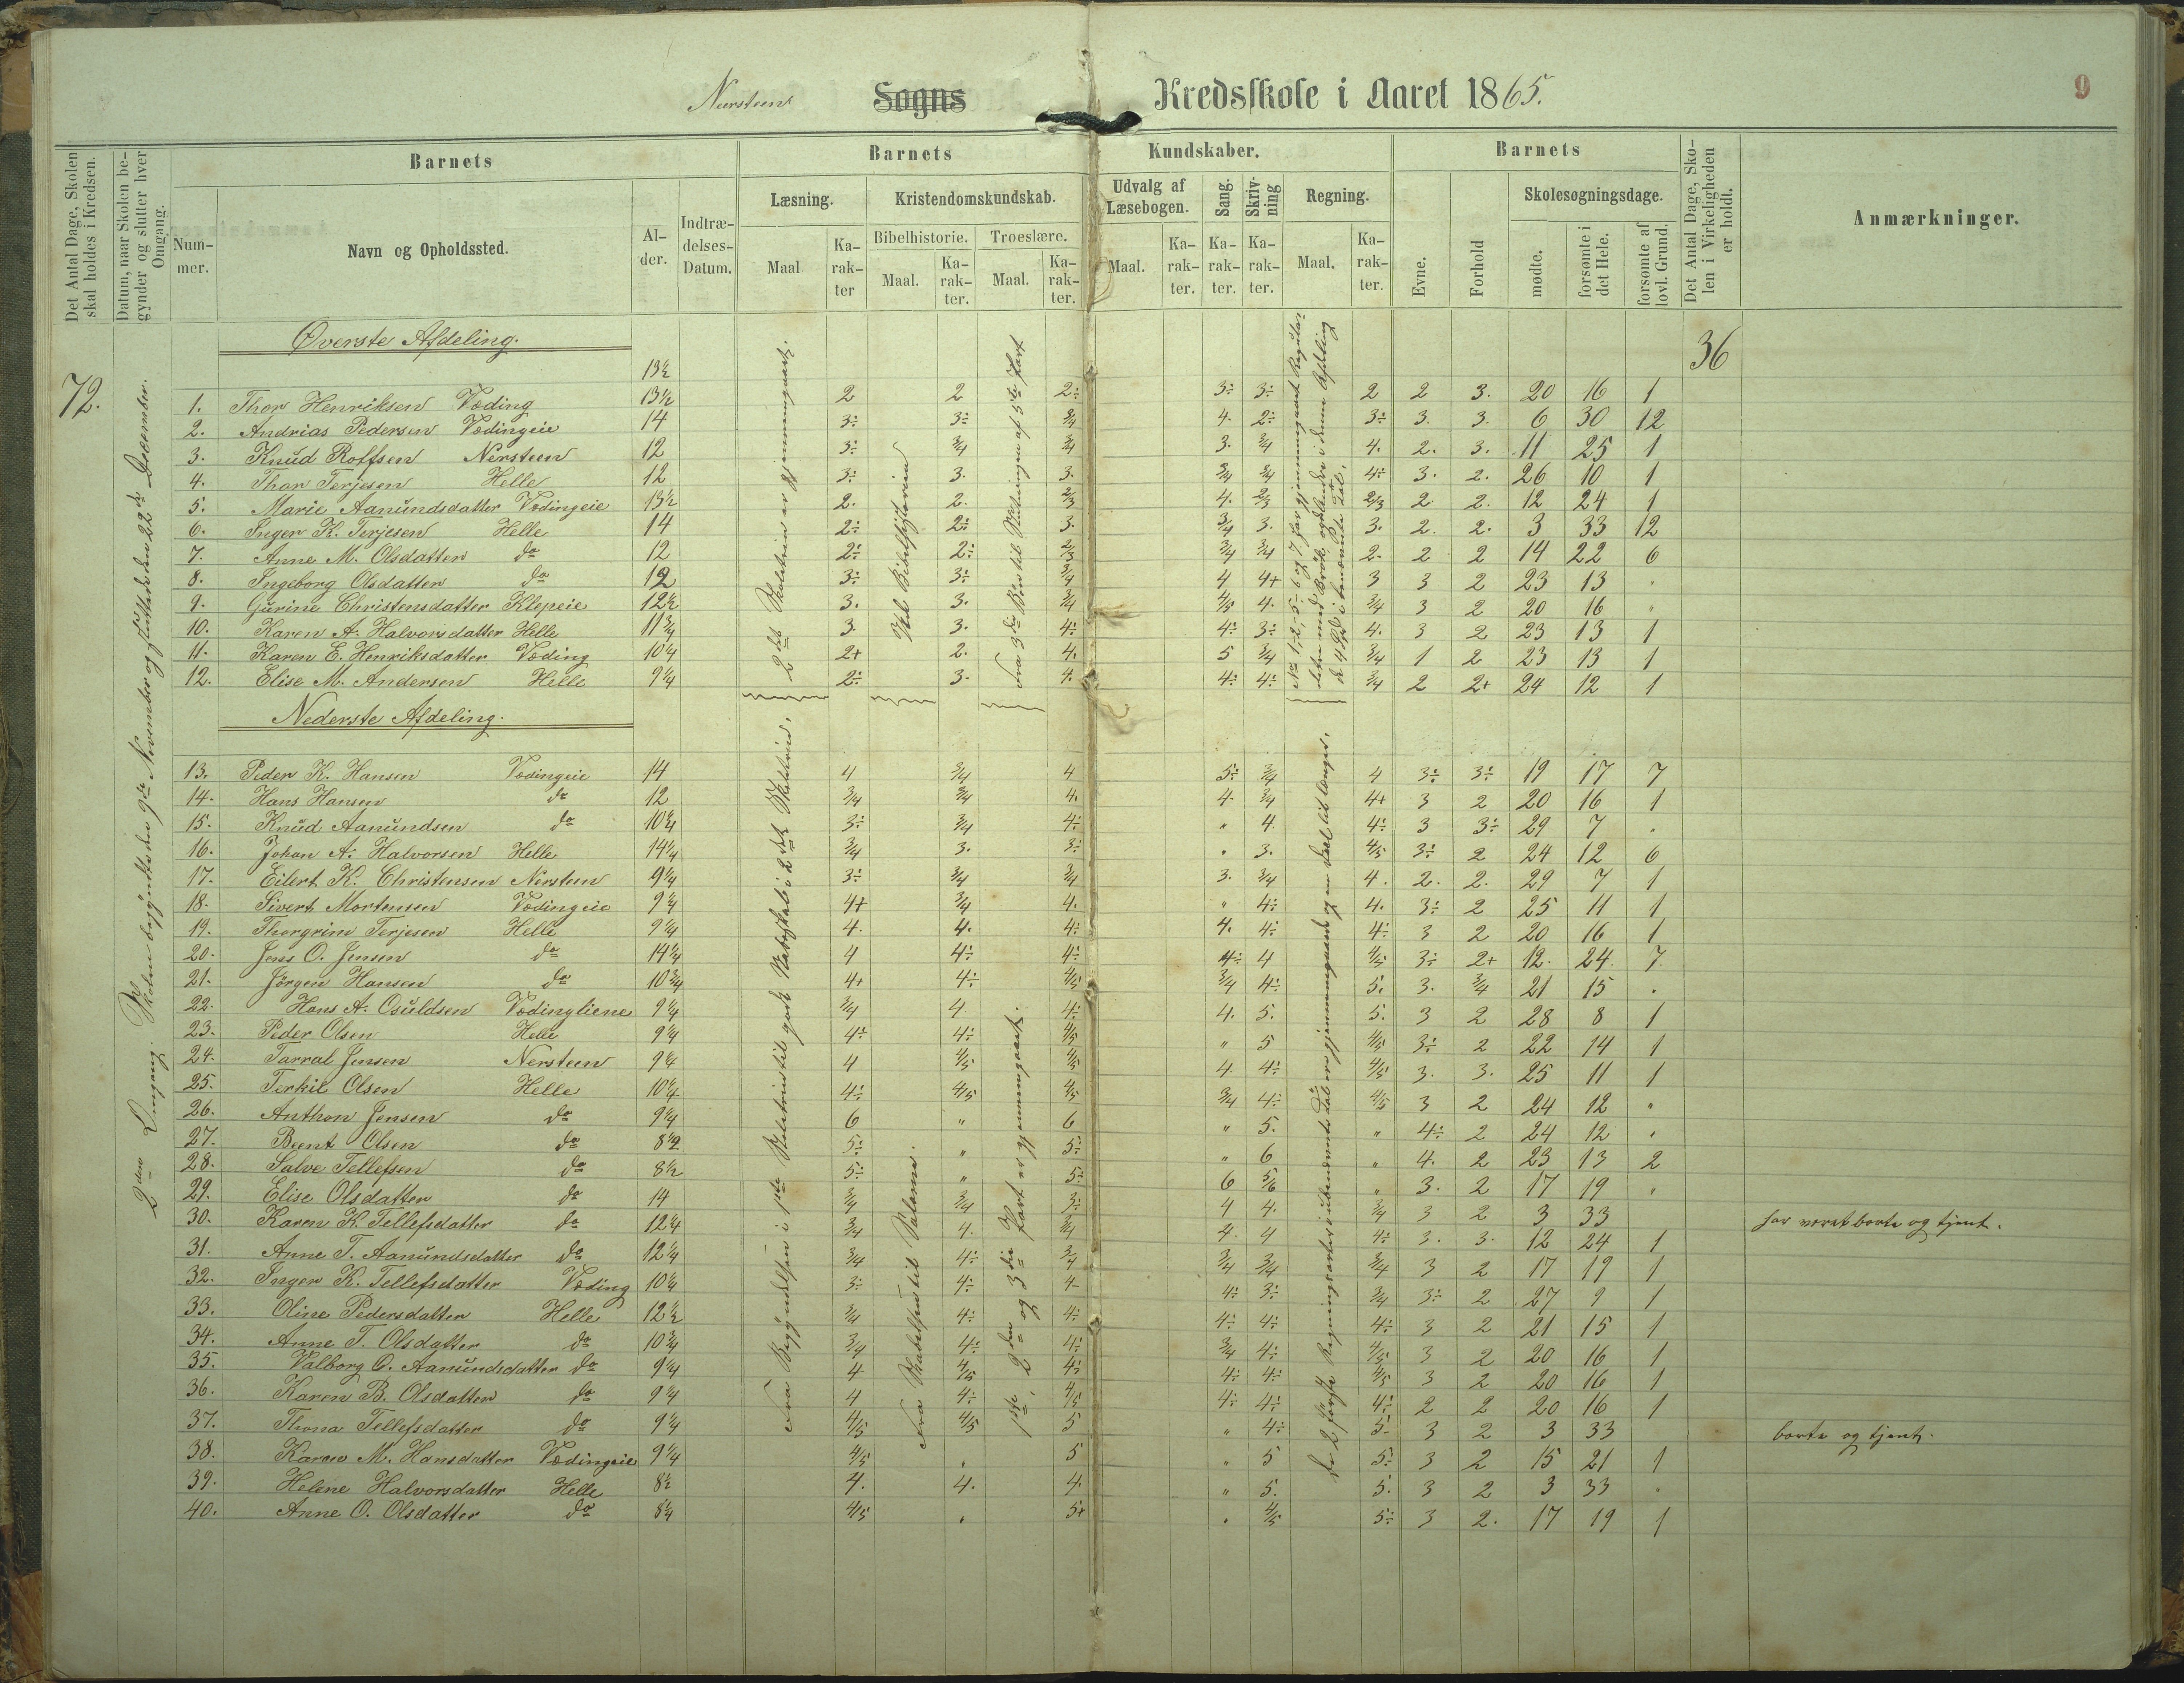 Nersteens Sogns Kredsskole i Aaret 1865.
9
Det Antal Dage, Skolen skal holdes i Kredsen.
Datum, naar Skolen begynder og slutter hver Omgang.
Barnets
Nummer.
Navn og Opholdssted.
Alder.
Indtrædelses-Datum.
Barnets Kundskaber.
Læsning.
Maal
Karakter
Kristendomskundskab.
Bibelhistorie.
Maal.
Karakter.
Troeslære.
Maal.
Karakter.
Udvalg af Læsebogen.
Maal.
Karakter.
Sang.
Karakter.
Skrivning
Karakter.
Regning.
Maal.
Karakter.
Barnets
Evne.
Forhold
Skolesøgningsdage.
mødte.
forsømte i det Hele.
forsømte af lovl. Grund.
Det Antal Dage, Skolen i Virkeligheden er holdt.
Anmærkninger.
72.
2den Omgang. Skolen begyndte den 9de November og sluttede den 22de December.
36
Øverste Afdeling.
13½
1. Thor Henriksen Væding 13½ 2 2 2÷ 3÷ 3÷ 2 2 3. 20 16 1
2. Andrias Pedersen Vædingeie 14 3÷ 3÷ ¾ 4. 2÷ 3÷ 3. 3. 6 30 12
3. Knud Roffsen Nersteen 12 3÷ ¾ ¾ 3. ¾ 4. 2. 3. 11 25 1
4. Thor Terjesen Helle 12 3÷ 3. 3. ¾ ¾ 4÷ 3. 2. 26 10 1
5. Marie Aanundsdatter Vædingeie 13½ 2. 2. 2/3 4. 2/3 2/3 2 2. 12 24 1
6. Inger K. Terjesen Helle 14 2÷ 2÷ 3. ¾ 3. 3. 2. 2. 3 33 12
7. Anne M. Olsdatter do 12 2÷ 2÷ 2/3 ¾ ¾ 2. 2 2 14 22 6
8. Ingeborg Olsdatter do 12 3÷ 3÷ ¾ 4 4+ 3 3 2 23 13 "
9. Gurine Christensdatter Klepeie 12½ 3. 3. ¾ 4/5 4. ¾ 3 2 20 16 "
10. Karen A. Halvorsdatter Helle 11¾ 3. 3. 4÷ 4÷ 3÷ 4. 3 2 23 13 1
11. Karen E. Henriksdatter Væding 10¼ 2+ 2. 4. 5 ¾ ¾ 1 2 23 13 1
12. Elise M. Andersen Helle 9¼ 2÷ 3. 4. 4÷ 4÷ ¾ 2 2+ 24 12 1
2det Skoletrin er gjennemgaaet.
Hele Bibelhistorien
Fra 3die Bøn til Slutningen af 5te Part
Nederste Afdeling.
13. Peder K. Hansen Vædingeie 14 4 ¾ 4 5÷ ¾ 4 3÷ 3÷ 19 17 7
14. Hans Hansen do 12 ¾ ¾ 4. 4. ¾ 4+ 3 2 20 16 1
15. Knud Aanundsen do 10¼ 3÷ ¾ 4÷ " 4. 4÷ 3 3÷ 29 7 "
16. Johan A. Halvorsen Helle 14¼ ¾ 3. 3÷ " 3. 4/5 3÷ 2 24 12 6
17. Eilert K. Christensen Nersteen 9¼ 3÷ ¾ ¾ 3. ¾ 4. 2. 2. 29 7 1
18. Sivert Mortensen Vædingeie 9¼ 4+ ¾ 4. " 4÷ 4. 3÷ 2 25 11 1
19. Thorgrim Terjesen Helle 9¼ 4. 4. 4÷ 4. 4÷ 4÷ 3 2 20 16 1
20. Jens O. Jensen do 14¼ 4 4÷ 4÷ 4÷ 4 4/5 3÷ 2+ 12. 24. 7
21. Jörgen Hansen do 10¾ 4+ 4÷ 4/5 ¾ 4÷ 5. 3. ¾ 21 15 "
22. Hans A. Osuldsen Vædingliene 9¼ ¾ 4 4÷ 4. 5. 5. 3 2 28 8 1
23. Peder Olsen Helle 9¼ 4÷ 4÷ 4/5 " 5 4/5 3÷ 2 22 14 1
24. Tarral Jensen Nersteen 9¼ 4 4/5 4/5 4 4÷ 4/5 3. 3. 25 11 1
25. Terkil Olsen Helle 10¼ 4÷ 4/5 4/5 ¾ 4÷ 4/5 3 2 24 12 "
26. Anthon Jensen do 9¼ 6 " 6 " 5. " 4÷ 2 24 12 "
27. Beent Olsen do 8½ 5÷ " 5÷ " 6 " 4. 2 23 13 2
28. Salve Tellefsen do 8½ 5÷ " 5÷ 6 5/6 " 3. 2 17 19 "
29. Elise Olsdatter do 14 ¾ ¾ 3÷ 4 4. ¾ 3 2 3 33 har været borte og tjent.
30. Karen K. Tellefsdatter do 12¼ ¾ 4. ¾ 4. 4 4÷ 3. 3. 12 24 1
31. Anne T. Aanundsdatter do 12¼ ¾ 4÷ ¾ ¾ ¾ ¾ 3 2 17 19 1
32. Inger K. Tellefsdatter Væding 10¼ 3÷ 4÷ 4- 4÷ 3÷ ¾ 3÷ 2 27 9 1
33. Oline Pedersdatter Helle 12½ ¾ 4÷ 4÷ 4÷ 4÷ 4÷ 3 2 21 15 1
34. Anne T. Olsdatter do 10¾ ¾ 4÷ 4÷ ¾ 4÷ 4/5 3 2 20 16 1
35. Valborg O. Aanundsdatter do 9¼ 4 4/5 4÷ 4÷ 4÷ 4/5 3 2 20 16 1
36. Karen B. Olsdatter do 9¼ 4 4÷ 4/5 4÷ 4÷ 4÷ 2 2 20 16 1
37. Thona Tellefsdatter do 9¼ 4/5 4/5 5 " 4÷ 5- 3 2 3 33 borte og tjent.
38. Karen M. Hansdatter Vædingeie 9¼ 4/5 " 5 " 5 5÷ 3 2 15 21 1
39. Helene Halvorsdatter Helle 8½ 4. 4. 4. " 5. 5. 3 2 3 33 "
40. Anne O. Olsdatter do 8¼ 4/5 " 5+ " 4/5 5÷ 3 2. 17 19 1
Fra Begyndelsen i 1ste Skoletrin til godt Skudsmål i 2det
Fra Skabelsen til
1ste, 2den og 3die Part er gjennemgaaet.
De 2 første Regningsarter i ubenævnte Tal er gjennemgaaede og en Deel til længer.